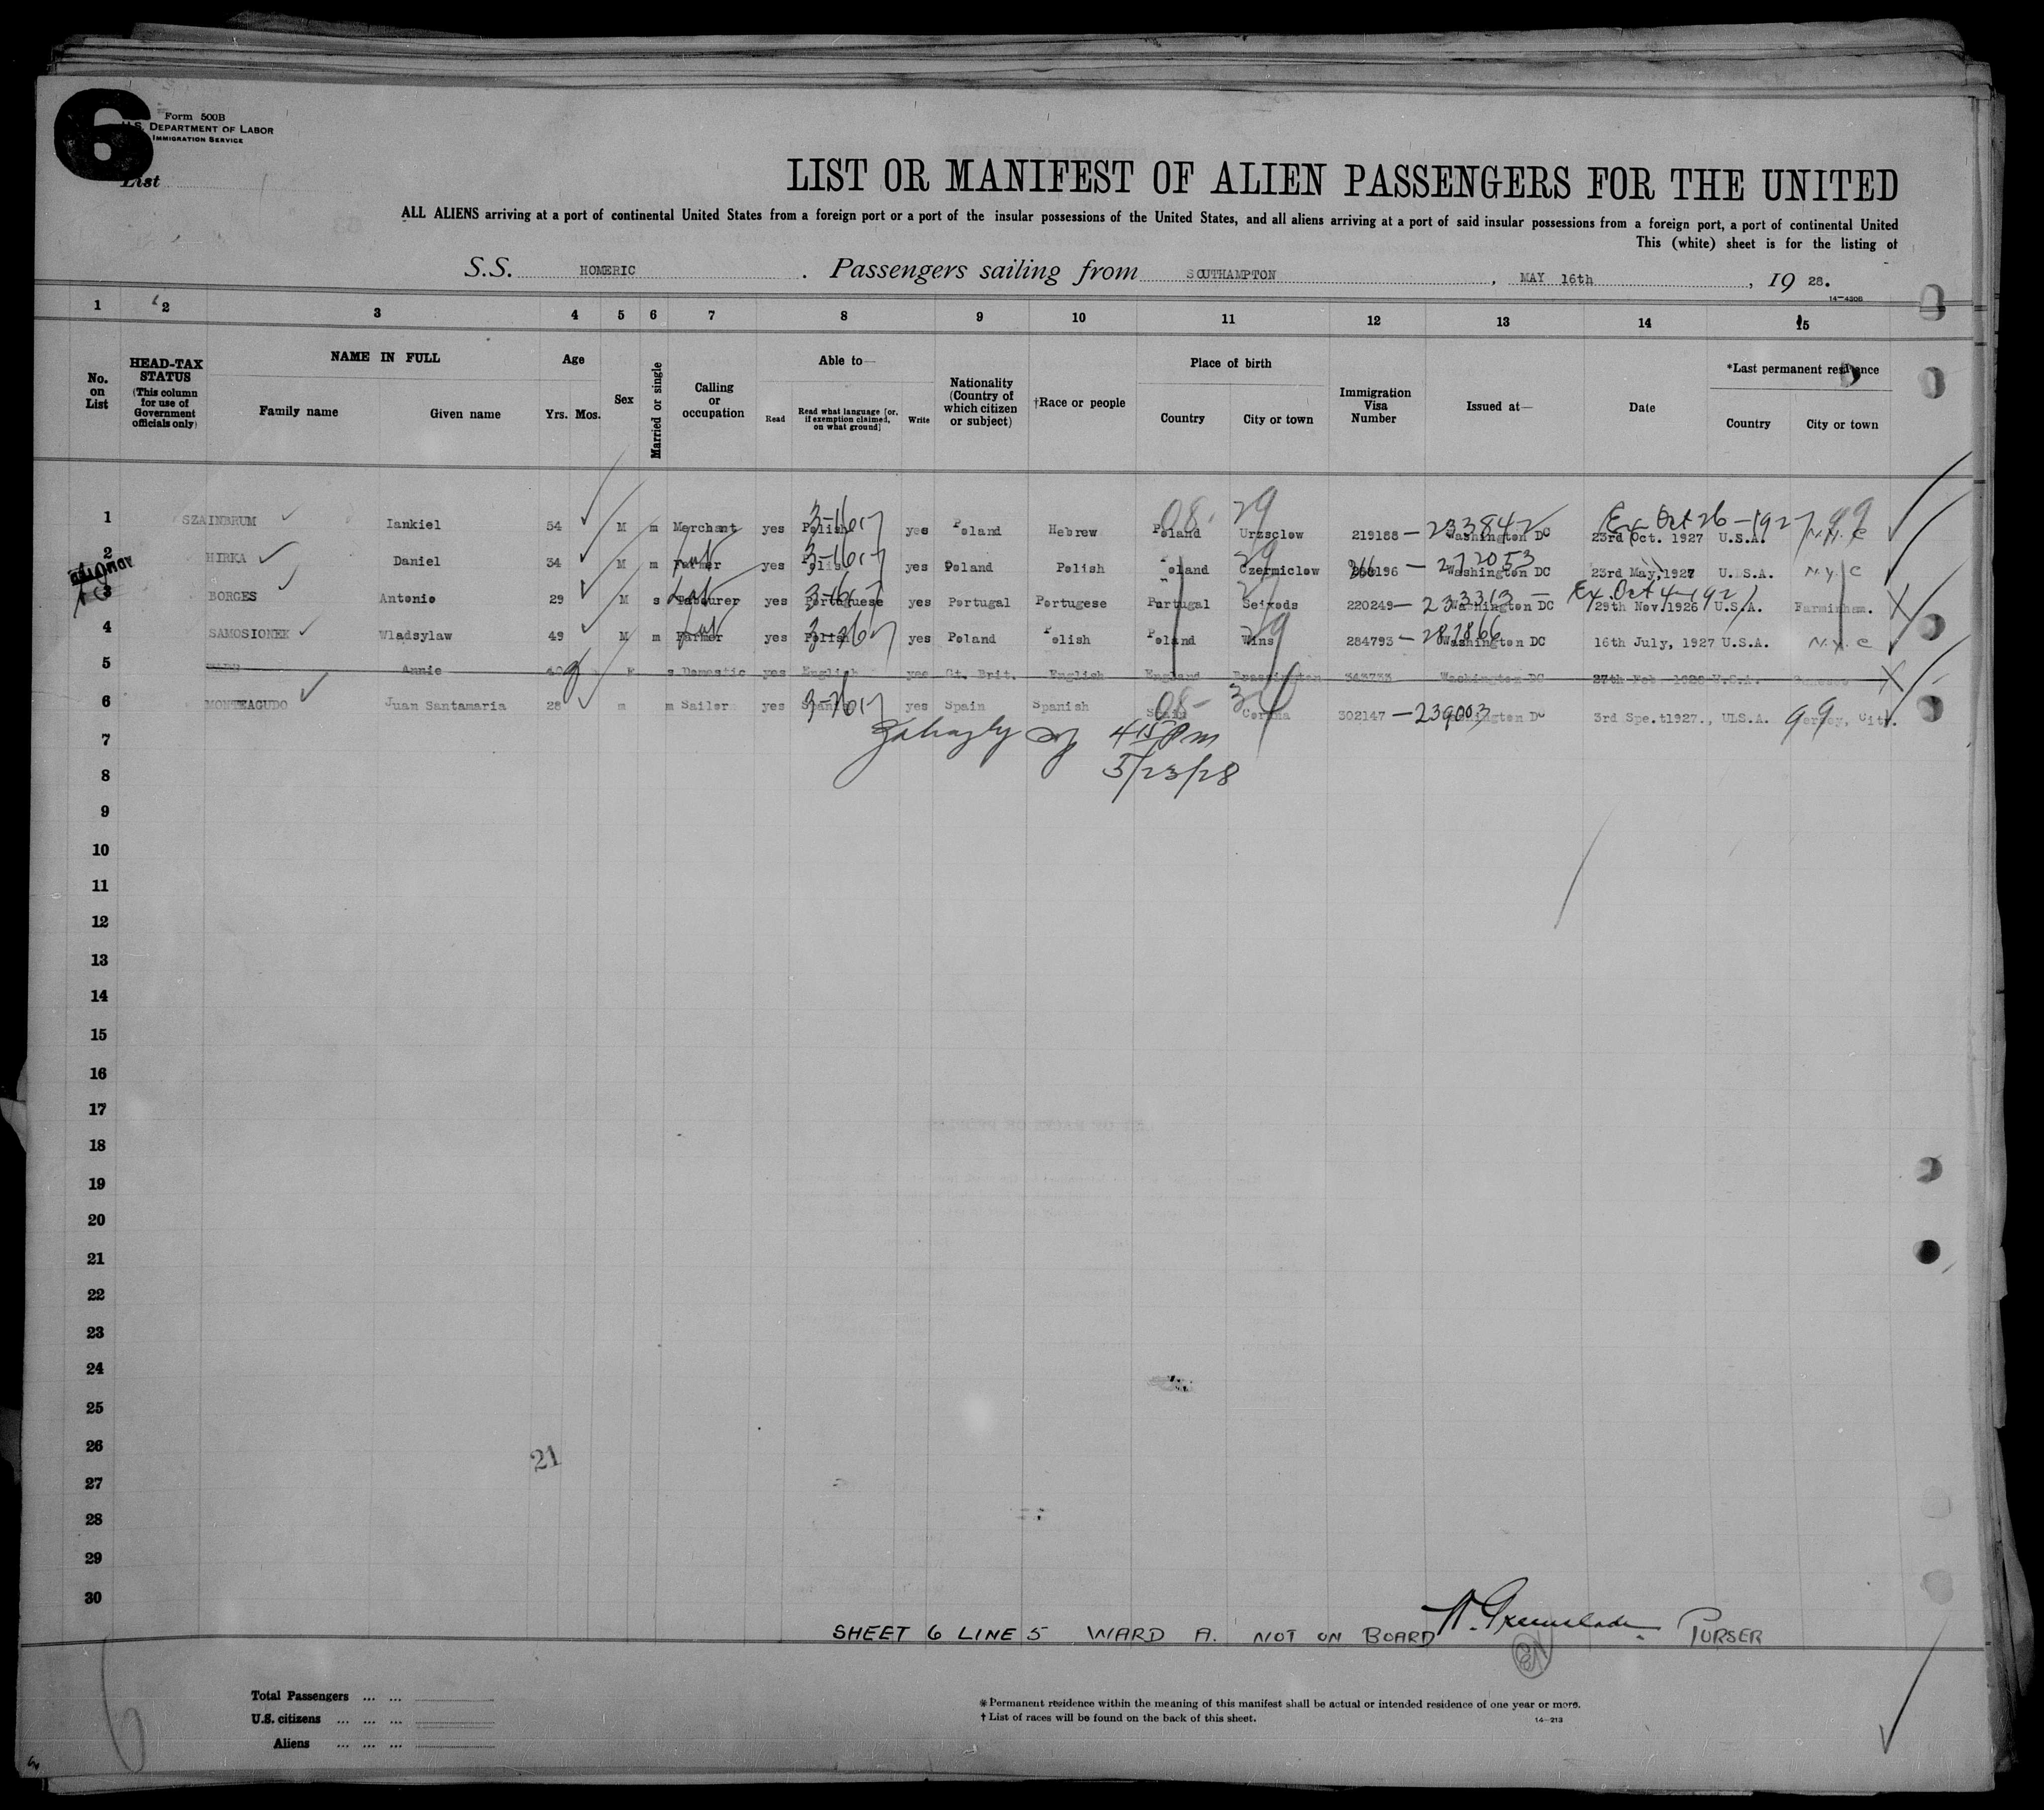 6
Form 500B
U.S. DEPARTMENT OF LABOR
IMMIGRATION SERVICE
List
LIST OR MANIFEST OF ALIEN PASSENGERS FOR THE UNITED
ALL ALIENS arriving at a port of continental United States from a foreign port or a port of the insular possessions of the United States, and all aliens arriving at a port of said insular possessions from a foreign port, a port of continental United
This (white) sheet is for the listing of
S.S. HOMERIC . Passengers sailing from SOUTHAMPTON , MAY 16th , 19 28.
14-4206
1 2 3 4 5 6 7 8 9 10 11 12 13 14 15
No. on List
HEAD-TAX STATUS (This column for use of Government officials only)
NAME IN FULL
Family name Given name
Age
Yrs. Mos.
Sex
Married or single
Calling or occupation
Able to—
Read Read what language [or, if exemption claimed, on what ground] Write
Nationality (Country of which citizen or subject)
†Race or people
Place of birth
Country City or town
Immigration Visa Number
Issued at—
Date
*Last permanent residence
Country City or town
08- 29 233842 Ex Oct 26-1927 99
1 SZAINBRUM Iankiel 54 M m Merchant yes Polish yes Poland Hebrew Poland Urzsclow 219188 — Washington DC 23rd Oct. 1927 U.S.A. N.Y.C
2 HIRKA Daniel 34 M m Farmer yes yes Poland Polish Poland Czermiclow — 272053 Washington DC 23rd May, 1927 U.S.A. N.Y.C
3 BORGES Antonio 29 M s Labourer yes Portuguese yes Portugal Portugese Portugal Seixods 220249 — 233313 — Washington DC Ex Oct 4-1927 29th Nov. 1926 U.S.A. Farminham.
4 SAMOSIONEK Wladsylaw 49 M m Farmer yes Polish yes Poland Polish Poland Wins 284793 — 287866 Washington DC 16th July, 1927 U.S.A. N.Y.C
5 WARD Annie F s Domestic yes English yes Gt. Brit. English England 343733 Washington DC 27th Feb 1928 U.S.A.
6 MONTEAGUDO Juan Santamaria 28 m m Sailor yes Spanish yes Spain Spanish Spain Coruna 302147 — 239003 Washington DC 3rd Spe.t1927., ULS.A. Jersey, City.
7 415 Pm
8 5/23/28
9
10
11
12
13
14
15
16
17
18
19
20
21
22
23
24
25
26
21
27
28
29
30
SHEET 6 LINE 5 WARD A. NOT ON BOARD PURSER
Total Passengers ... ...
U.S. citizens ... ... ...
Aliens ... ... ...
* Permanent residence within the meaning of this manifest shall be actual or intended residence of one year or more.
† List of races will be found on the back of this sheet.
14-213